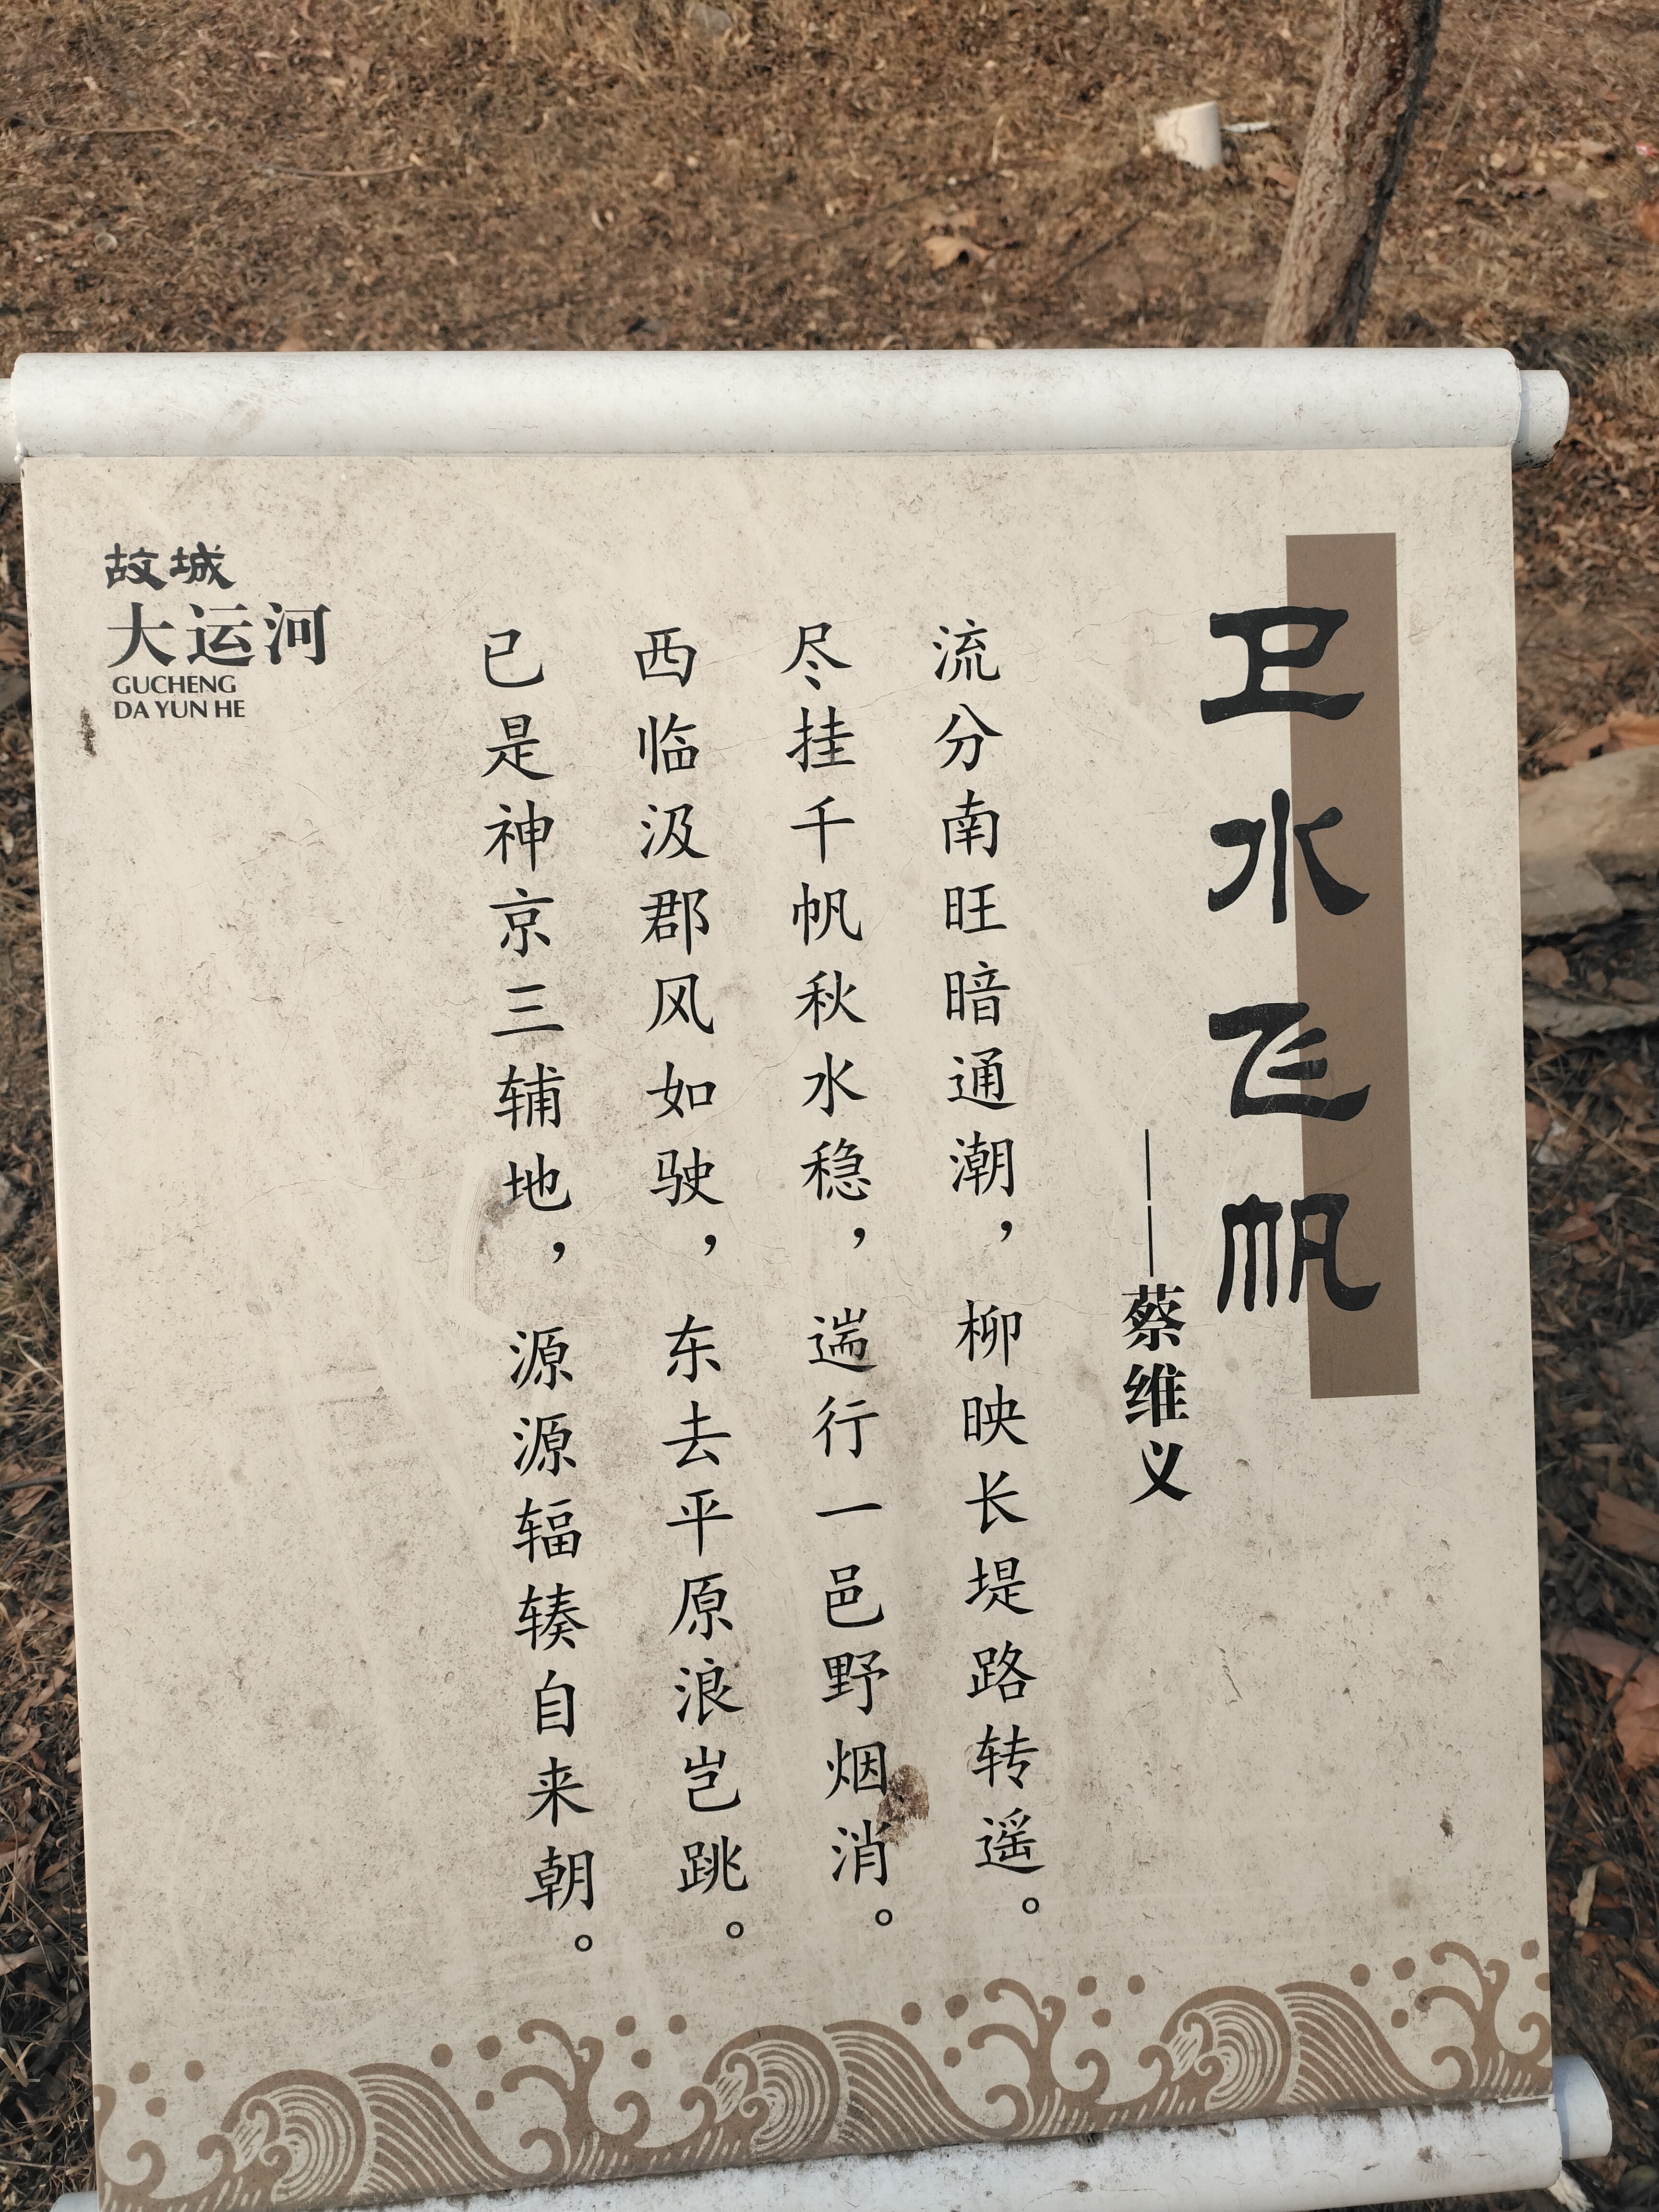 卫水飞帆
——蔡维义
流分南旺暗通潮，柳映长堤路转遥。
尽挂千帆秋水稳，遄行一邑野烟消。
西临汲郡风如驶，东去平原浪岂跳。
已是神京三辅地，源源辐辏自来朝。
故城
大运河
GUCHENG
DA YUN HE